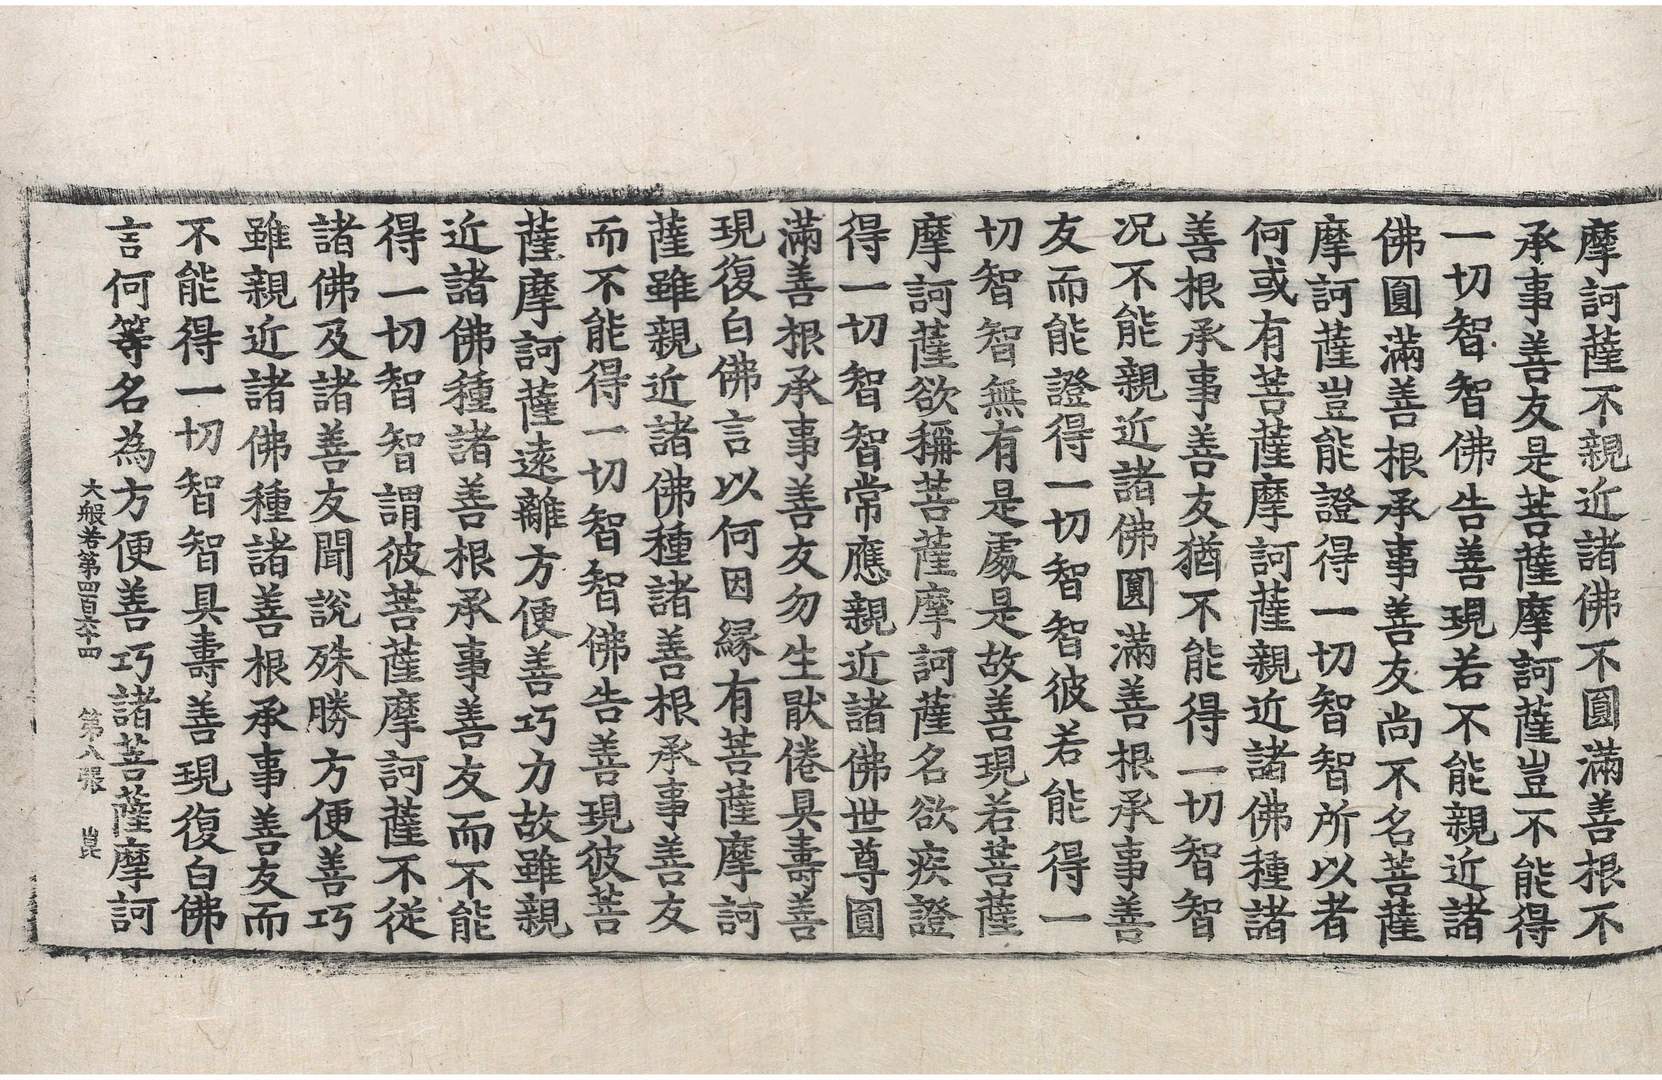 摩訶薩不親近諸佛不圓滿善根不
承事善友是菩薩摩訶薩豈不能得
一切智智佛告善現若不能親近諸
佛圓滿善根承事善友尚不名菩薩
摩訶薩豈能證得一切智智所以者
何或有菩薩摩訶薩親近諸佛種諸
善根承事善友猶不能得一切智智
况不能親近諸佛圓滿善根承事善
友而能證得一切智智彼若能得一
切智智無有是處是故善現若菩薩
摩訶薩欲稱菩薩摩訶薩名欲疾證
得一切智智常應親近諸佛世尊圓
滿善根承事善友勿生猒倦具壽善
現復白佛言以何因緣有菩薩摩訶
薩雖親近諸佛種諸善根承事善友
而不能得一切智智佛告善現彼菩
薩摩訶薩遠離方便善巧力故雖親
近諸佛種諸善根承事善友而不能
得一切智智謂彼菩薩摩訶薩不從
諸佛及諸善友聞說殊勝方便善巧
雖親近諸佛種諸善根承事善友而
不能得一切智智具壽善現復白佛
言何等名為方便善巧諸菩薩摩訶
大般若第四百六十四 第八張 崑